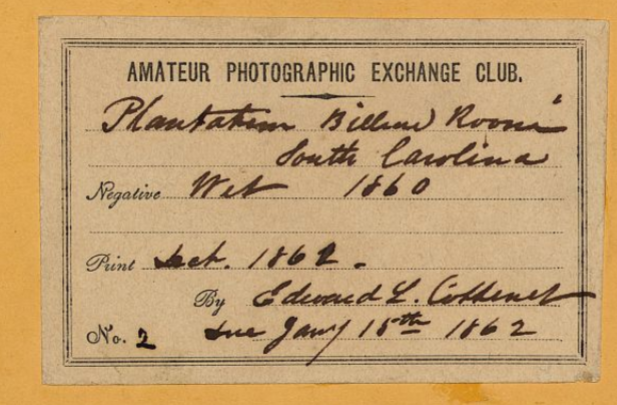 AMATEUR PHOTOGRAPHIC EXCHANGE CLUB.
Plantation Billiard Room
South Carolina
Negative Wet 1860
Print 186
By Edward L. Cottenet
No. 2 due Jany 15th 1862